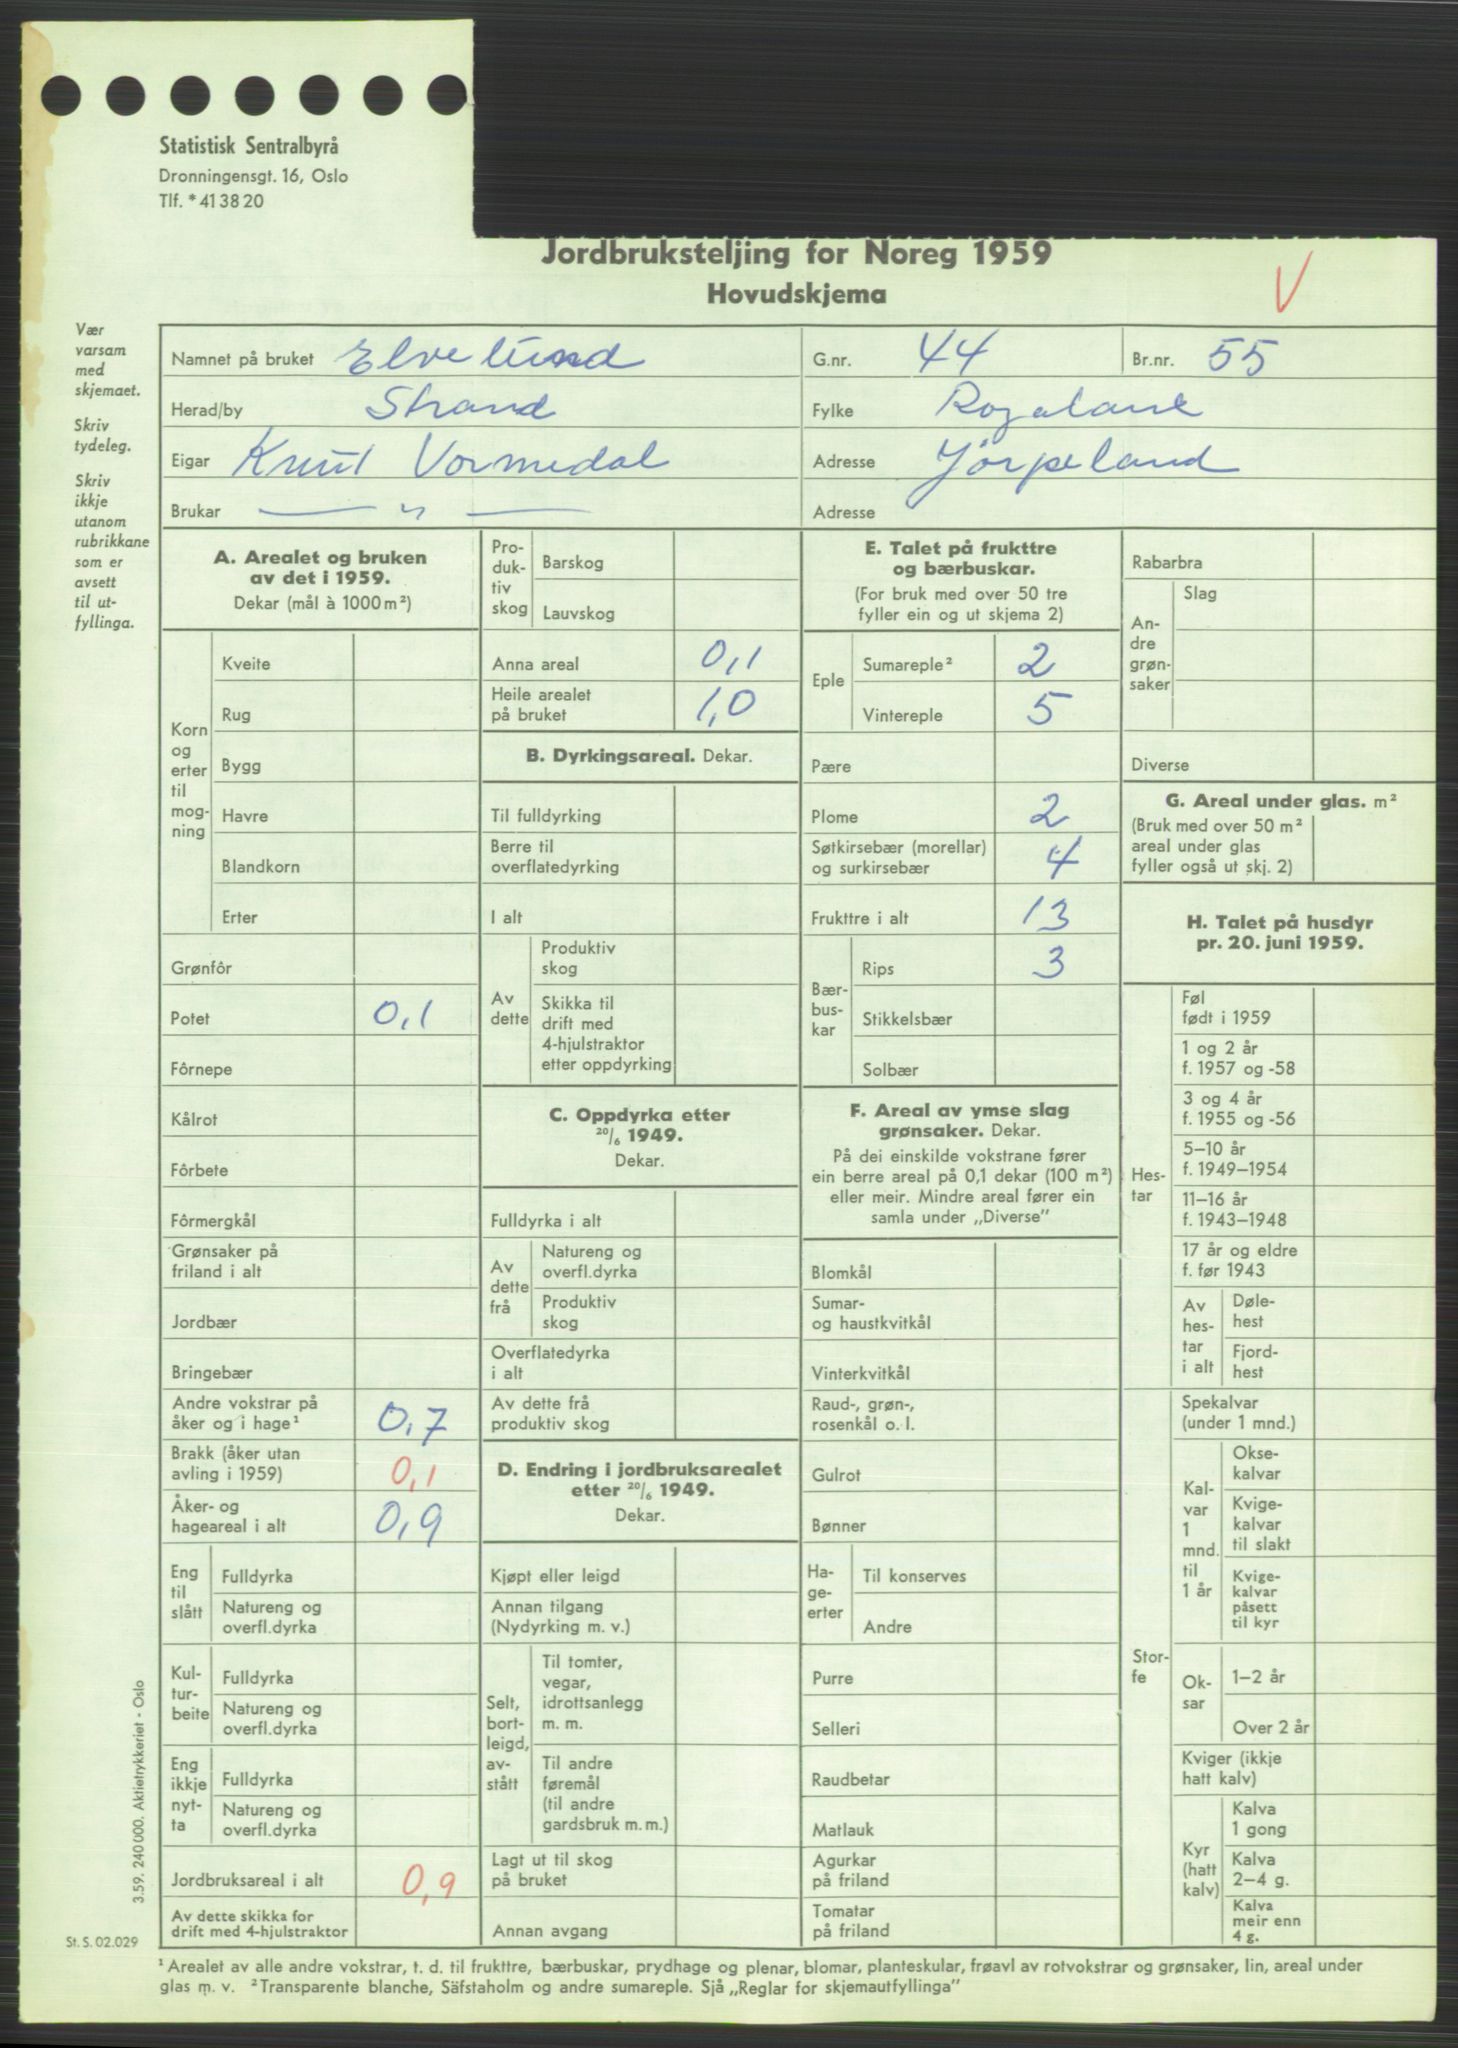 Statistisk Sentralbyrå
Dronningensgt. 16, Oslo
Tlf. *41 38 20
Jordbruksteljing for Noreg 1959
Hovudskjema
V
Vær
varsam
med
skjemaet.
Skriv
tydeleg.
Skriv
ikkje
utanom
rubrikkane
som er
avsett
til ut-
fyllinga.
Namnet på bruket Elvelund G.nr. 44 Br.nr. 55
Herad/by Strand Fylke Rogaland
Eigar Knut Vormedal Adresse Jörpeland
Brukar — " — Adresse
A. Arealet og bruken
av det i 1959.
Dekar (mål à 1000 m²)
Korn
og
erter
til
mog-
ning
Kveite
Rug
Bygg
Havre
Blandkorn
Erter
Grønfôr
Potet 0,1
Fôrnepe
Kålrot
Fôrbete
Fôrmergkål
Grønsaker på
friland i alt
Jordbær
Bringebær
Andre vokstrar på
åker og i hage¹ 0,7
Brakk (åker utan
avling i 1959) 0,1
Åker- og
hageareal i alt 0,9
Eng
til
slått
Fulldyrka
Natureng og
overfl.dyrka
Kul-
tur-
beite
Fulldyrka
Natureng og
overfl.dyrka
Eng
ikkje
nyt-
ta
Fulldyrka
Natureng og
overfl.dyrka
Jordbruksareal i alt 0,9
Av dette skikka for
drift med 4-hjulstraktor
Pro-
duk-
tiv
skog
Barskog
Lauvskog
Anna areal 0,1
Heile arealet
på bruket 1,0
B. Dyrkingsareal. Dekar.
Til fulldyrking
Berre til
overflatedyrking
I alt
Av
dette
Produktiv
skog
Skikka til
drift med
4-hjulstraktor
etter oppdyrking
C. Oppdyrka etter
20/6 1949.
Dekar.
Fulldyrka i alt
Av
dette
frå
Natureng og
overfl.dyrka
Produktiv
skog
Overflatedyrka
i alt
Av dette frå
produktiv skog
D. Endring i jordbruksarealet
etter 20/6 1949.
Dekar.
Kjøpt eller leigd
Annan tilgang
(Nydyrking m. v.)
Selt,
bort-
leigd,
av-
stått
Til tomter,
vegar,
idrottsanlegg
m. m.
Til andre
føremål
(til andre
gardsbruk m. m.)
Lagt ut til skog
på bruket
Annan avgang
E. Talet på frukttre
og bærbuskar.
(For bruk med over 50 tre
fyller ein og ut skjema 2)
Eple
Sumareple² 2
Vintereple 5
Pære
Plome 2
Søtkirsebær (morellar)
og surkirsebær 4
Frukttre i alt 13
Bær-
bus-
kar
Rips 3
Stikkelsbær
Solbær
F. Areal av ymse slag
grønsaker. Dekar.
På dei einskilde vokstrane fører
ein berre areal på 0,1 dekar (100 m²)
eller meir. Mindre areal fører ein
samla under „Diverse”
Blomkål
Sumar-
og haustkvitkål
Vinterkvitkål
Raud-, grøn-,
rosenkål o. l.
Gulrot
Bønner
Ha-
ge-
erter
Til konserves
Andre
Purre
Selleri
Raudbetar
Matlauk
Agurkar
på friland
Tomatar
på friland
Rabarbra
An-
dre
grøn-
saker
Slag
Diverse
G. Areal under glas. m²
(Bruk med over 50 m²
areal under glas
fyller også ut skj. 2)
H. Talet på husdyr
pr. 20. juni 1959.
Hes-
tar
Føl
født i 1959
1 og 2 år
f. 1957 og -58
3 og 4 år
f. 1955 og -56
5–10 år
f. 1949–1954
11–16 år
f. 1943–1948
17 år og eldre
f. før 1943
Av
hes-
tar
i alt
Døle-
hest
Fjord-
hest
Stor-
fe
Spekalvar
(under 1 mnd.)
Kal-
var
1
mnd.
til
1 år
Okse-
kalvar
Kvige-
kalvar
til slakt
Kvige-
kalvar
påsett
til kyr
Ok-
sar
1–2 år
Over 2 år
Kviger (ikkje
hatt kalv)
Kyr
(hatt
kalv)
Kalva
1 gong
Kalva
2–4 g.
Kalva
meir enn
4 g.
3.59. 240 000. Aktietrykkeriet - Oslo
St. S. 02.029
¹ Arealet av alle andre vokstrar, t. d. til frukttre, bærbuskar, prydhage og plenar, blomar, planteskular, frøavl av rotvokstrar og grønsaker, lin, areal under
glas m. v. ² Transparente blanche, Säfstaholm og andre sumareple. Sjå „Reglar for skjemautfyllinga”